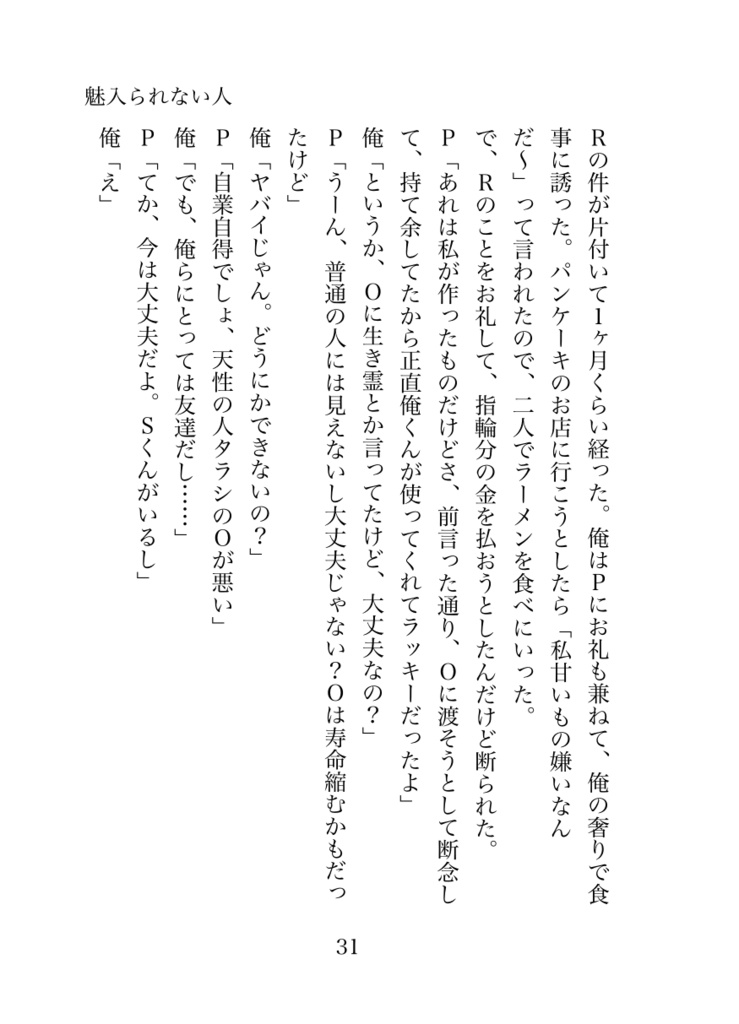 魅入られない人
Rの件が片付いて1ヶ月くらい経った。俺はPにお礼も兼ねて、俺の奢りで食
事に誘った。パンケーキのお店に行こうとしたら「私甘いもの嫌いなん
だ～」って言われたので、二人でラーメンを食べにいった。
で、Rのことをお礼して、指輪分の金を払おうとしたんだけど断られた。
P「あれは私が作ったものだけどさ、前言った通り、Oに渡そうとして断念し
て、持て余してたから正直俺くんが使ってくれてラッキーだったよ」
俺「というか、Oに生き霊とか言ってたけど、大丈夫なの？」
P「うーん、普通の人には見えないし大丈夫じゃない？Oは寿命縮むかもだっ
たけど」
俺「ヤバイじゃん。どうにかできないの？」
P「自業自得でしょ、天性の人タラシのOが悪い」
俺「でも、俺らにとっては友達だし……」
P「てか、今は大丈夫だよ。Sくんがいるし」
俺「え」
31